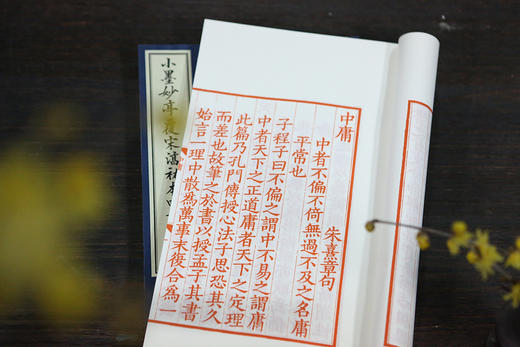 中庸
朱熹章句
中者不偏不倚無過不及之名庸
平常也
子程子曰不偏之謂中不易之謂庸
中者天下之正道庸者天下之定理
此篇乃孔門傳授心法子思恐其久
而差也故筆之於書以授孟子其書
始言一理中散爲萬事末復合爲一
小墨妙亭覆宋湻祐本四